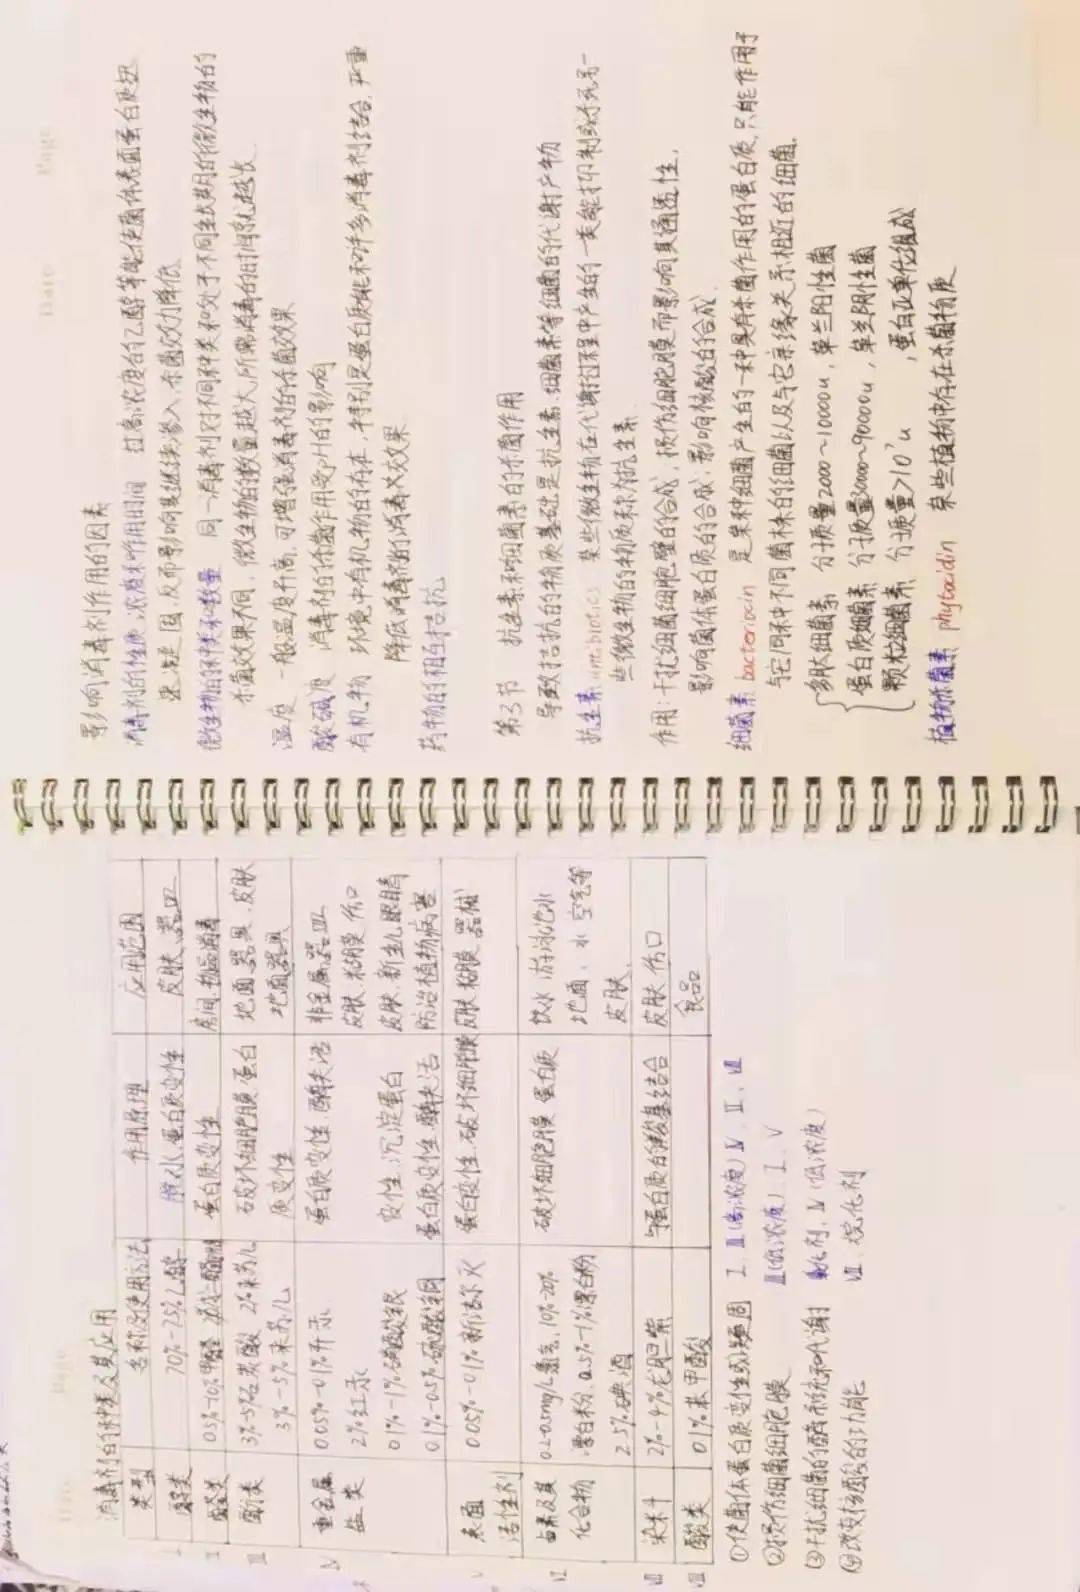 消毒剂的种类及其应用
类型 名称及使用方法 作用原理 应用范围
I 醇类 70%-75%乙醇 脱水,蛋白质变性 皮肤、器皿
II 醛类 0.5%-10%甲醛 蛋白质变性 房间、物品消毒
III 酚类 3%-5%石炭酸 2%来苏儿 破坏细胞膜、蛋白 地面、器具、皮肤
3%-5%来苏儿 质变性 地面器具
IV 重金属 0.05%-0.1%升汞 蛋白质变性、酶失活 非金属器皿
盐类 2%红汞 皮肤、粘膜、伤口
0.1%-1%硝酸银 变性、沉淀蛋白 皮肤、新生儿眼睛
0.1%-0.5%硫酸铜 蛋白质变性、酶失活 防治植物病害
V 表面 0.05%-0.1%新洁尔灭 蛋白变性、破坏细胞膜 皮肤粘膜器械
活性剂
VI 卤素及其 0.2-0.5mg/L氯气, 10%-20% 破坏细胞膜 蛋白质 饮水 游泳池水
化合物 漂白粉, 0.5%-1%漂白粉 地面、水 空气等
2.5%碘酒 皮肤
VII 染料 2%-4%龙胆紫 与蛋白质的羧基结合 皮肤、伤口
VIII 酸类 0.1%苯甲酸 食品
①使菌体蛋白质变性或凝固 I、III(高浓度)IV、II、VI
②损伤细菌细胞膜 III(低浓度)、I、V
③干扰细菌的酶系统和代谢 氧化剂、IV(低浓度)
④改变核酸的功能 VII、烷化剂
影响消毒剂作用的因素
消毒剂的性质、浓度和作用时间 过高浓度的乙醇等能使菌体表面蛋白质迅
速凝固,反而影响其继续渗入,杀菌效力降低
微生物的种类和数量 同一消毒剂对不同种类和处于不同生长期的微生物的
杀菌效果不同,微生物的数量越大,所需消毒的时间就越长
温度 一般温度升高,可增强消毒剂的杀菌效果
酸碱度 消毒剂的杀菌作用受pH的影响
有机物 环境中有机物的存在,特别是蛋白质能和许多消毒剂结合,严重
降低消毒剂的消毒效果
药物的相互拮抗
第3节 抗生素和细菌素的杀菌作用
导致拮抗的物质基础是抗生素、细菌素等细菌的代谢产物
抗生素 antibiotics 某些微生物在代谢过程中产生的一类能抑制或杀死另一
些微生物的物质称为抗生素
作用:干扰细菌细胞壁的合成,损伤细胞膜而影响其通透性,
影响菌体蛋白质的合成,影响核酸的合成
细菌素 bacteriocin 是某种细菌产生的一种具有杀菌作用的蛋白质,只能作用于
与它同种不同菌株的细菌以及与它亲缘关系相近的细菌.
多肽细菌素 分子质量2000~10000u,革兰阳性菌
蛋白质细菌素 分子质量30000~90000u,革兰阴性菌
颗粒细菌素 分子质量>10⁷u ,蛋白亚单位组成
植物杀菌素 phytocidin 某些植物中存在杀菌物质